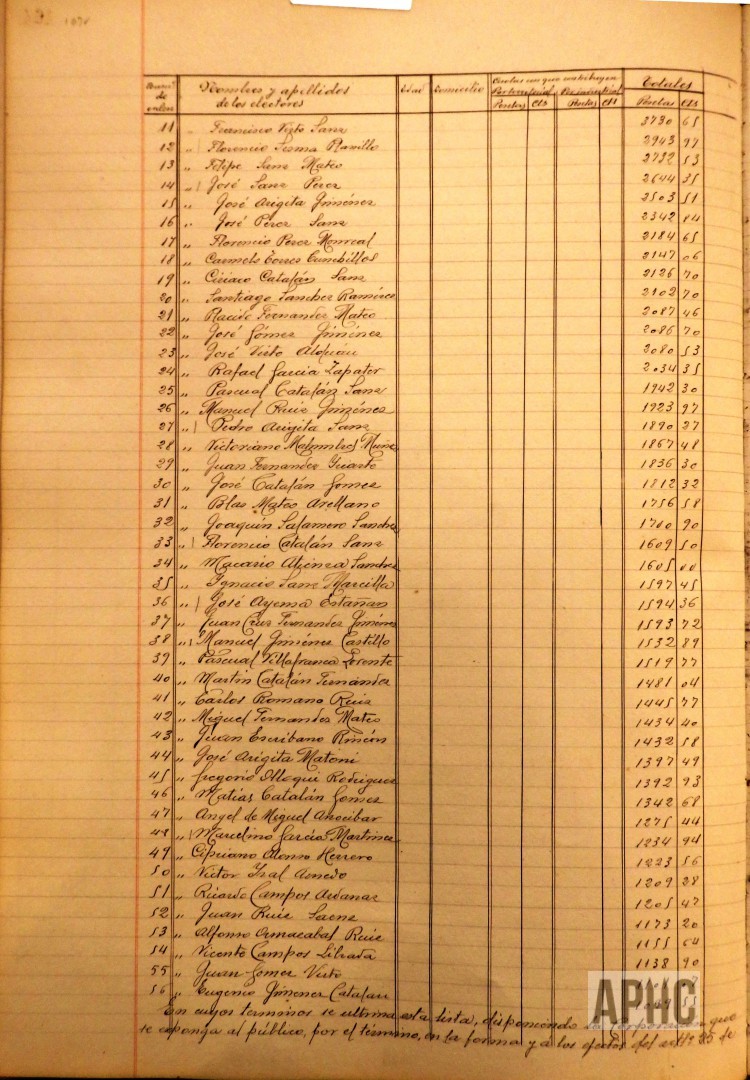 Num.º de orden Nombres y apellidos de los electores Edad Domicilio Cuotas con que contribuyen Totales
Por territorial Por industrial
Pesetas Cts Pesetas Cts Pesetas Cts
11 " Francisco Virto Sanz 3730 65
12 " Florencio Sesma 2943 97
13 " Felipe Sanz Mateo 2732 53
14 " José Sanz Perez 2644 35
15 " José Arigita Jiménez 2503 51
16 " José Perez Sanz 2342 04
17 " Florencio Perez Monreal 2184 65
18 " Carmelo Torres Cunchillos 2147 06
19 " Ciriaco Catalán Sanz 2126 70
20 " Santiago Sanchez Ramirez 2102 70
21 " Placido Fernandez Mateo 2087 46
22 " José Gómez Jiménez 2086 70
23 " José Virto 2080 53
24 " Rafael Garcia Zapater 2034 35
25 " Pascual Catalán Sanz 1942 30
26 " Manuel Ruiz Jiménez 1923 97
27 " Pedro Arigita Sanz 1890 27
28 " Victoriano 1867 48
29 " Juan Fernandez 1836 30
30 " José Catalán Gomez 1812 32
31 " Blas Mateo Arellano 1756 58
32 " Joaquín Salamero Sanchez 1700 90
33 " Florencio Catalán Sanz 1609 50
34 " Macario Atienza Sanchez 1605 00
35 " Ignacio Sanz Marcilla 1597 45
36 " José Ayensa Estañan 1594 36
37 " Juan Cruz Fernandez Jiménez 1593 72
38 " Manuel Jiménez Castillo 1532 89
39 " Pascual Villafranca Lorente 1519 77
40 " Martin Catalán Fernández 1481 04
41 " Carlos Romano Ruiz 1445 77
42 " Miguel Fernandez Mateo 1434 40
43 " Juan Escribano Rincón 1432 58
44 " José Arigita Matoni 1397 49
45 " Gregorio Rodriguez 1392 93
46 " Matías Catalán Gomez 1342 68
47 " Angel de Miguel Anocibar 1275 44
48 " Marcelino Garcia Martinez 1234 94
49 " Cipriano Alonso Herrero 1223 56
50 " Victor Ysal Arnedo 1209 28
51 " Ricardo Campos Ardanaz 1205 47
52 " Juan Ruiz Saenz 1173 20
53 " Alfonso Armacabal Ruiz 1155 64
54 " Vicente Campos Librada 1138 90
55 " Juan Gomez Virto
56 " Eugenio Jimenez Catalan
En cuyos terminos se ultima esta lista, disponiendo que
se exponga al público, por el término, en la forma y a los efectos del artº 25 de
APHC